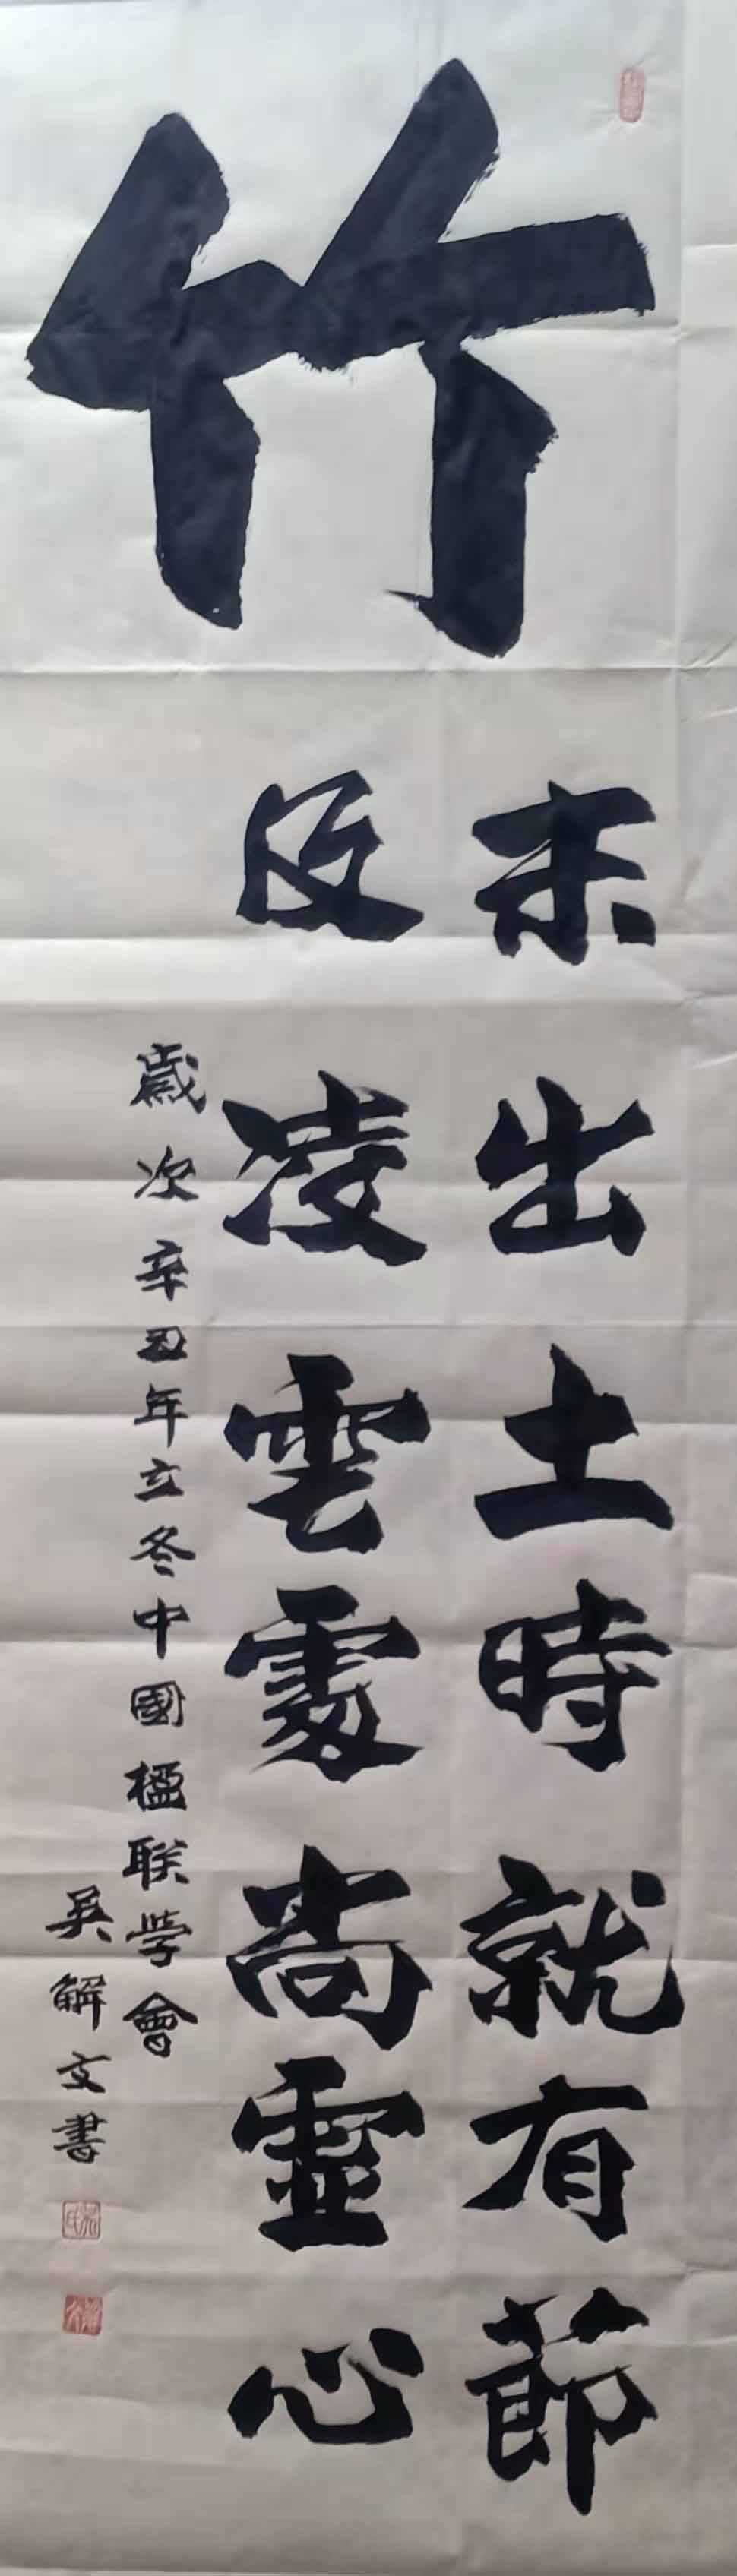 竹
未出土時就有節
及凌雲處尚虛心
歲次辛丑年立冬中國楹联學會
吴解文書